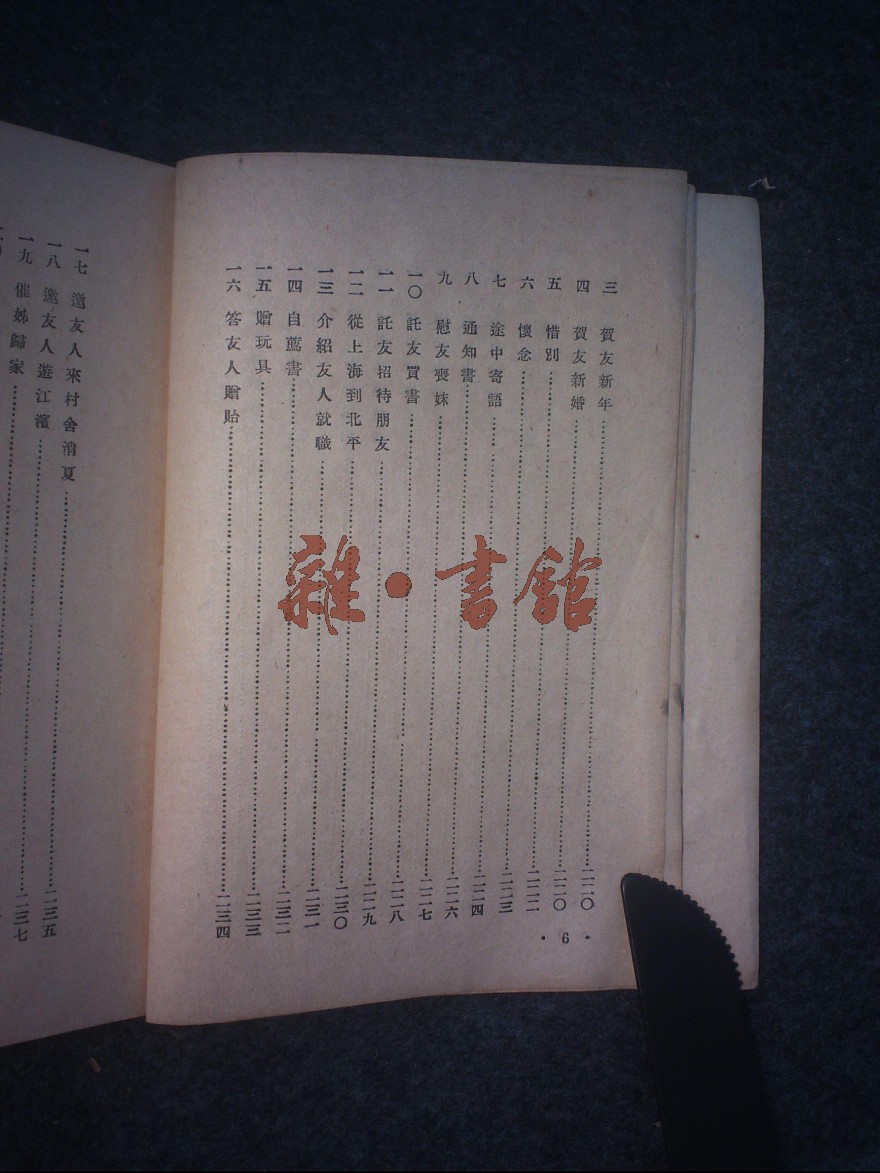 三 賀友新年……二二〇
四 賀友新婚……二二〇
五 惜別……二二二
六 懷念……二二三
七 途中寄語……二二四
八 通知書……二二六
九 慰友喪妹……二二七
一〇 託友買書……二二八
一一 託友招待朋友……二二九
一二 從上海到北平……二三〇
一三 介紹友人就職……二三一
一四 自薦書……二三二
一五 贈玩具……二三三
一六 答友人贈貽……二三四
· 6 ·
一七 邀友人來村舍消夏……二三五
一八 邀友人遊江濱……二三七
一九 催姊歸家……
雜·書館